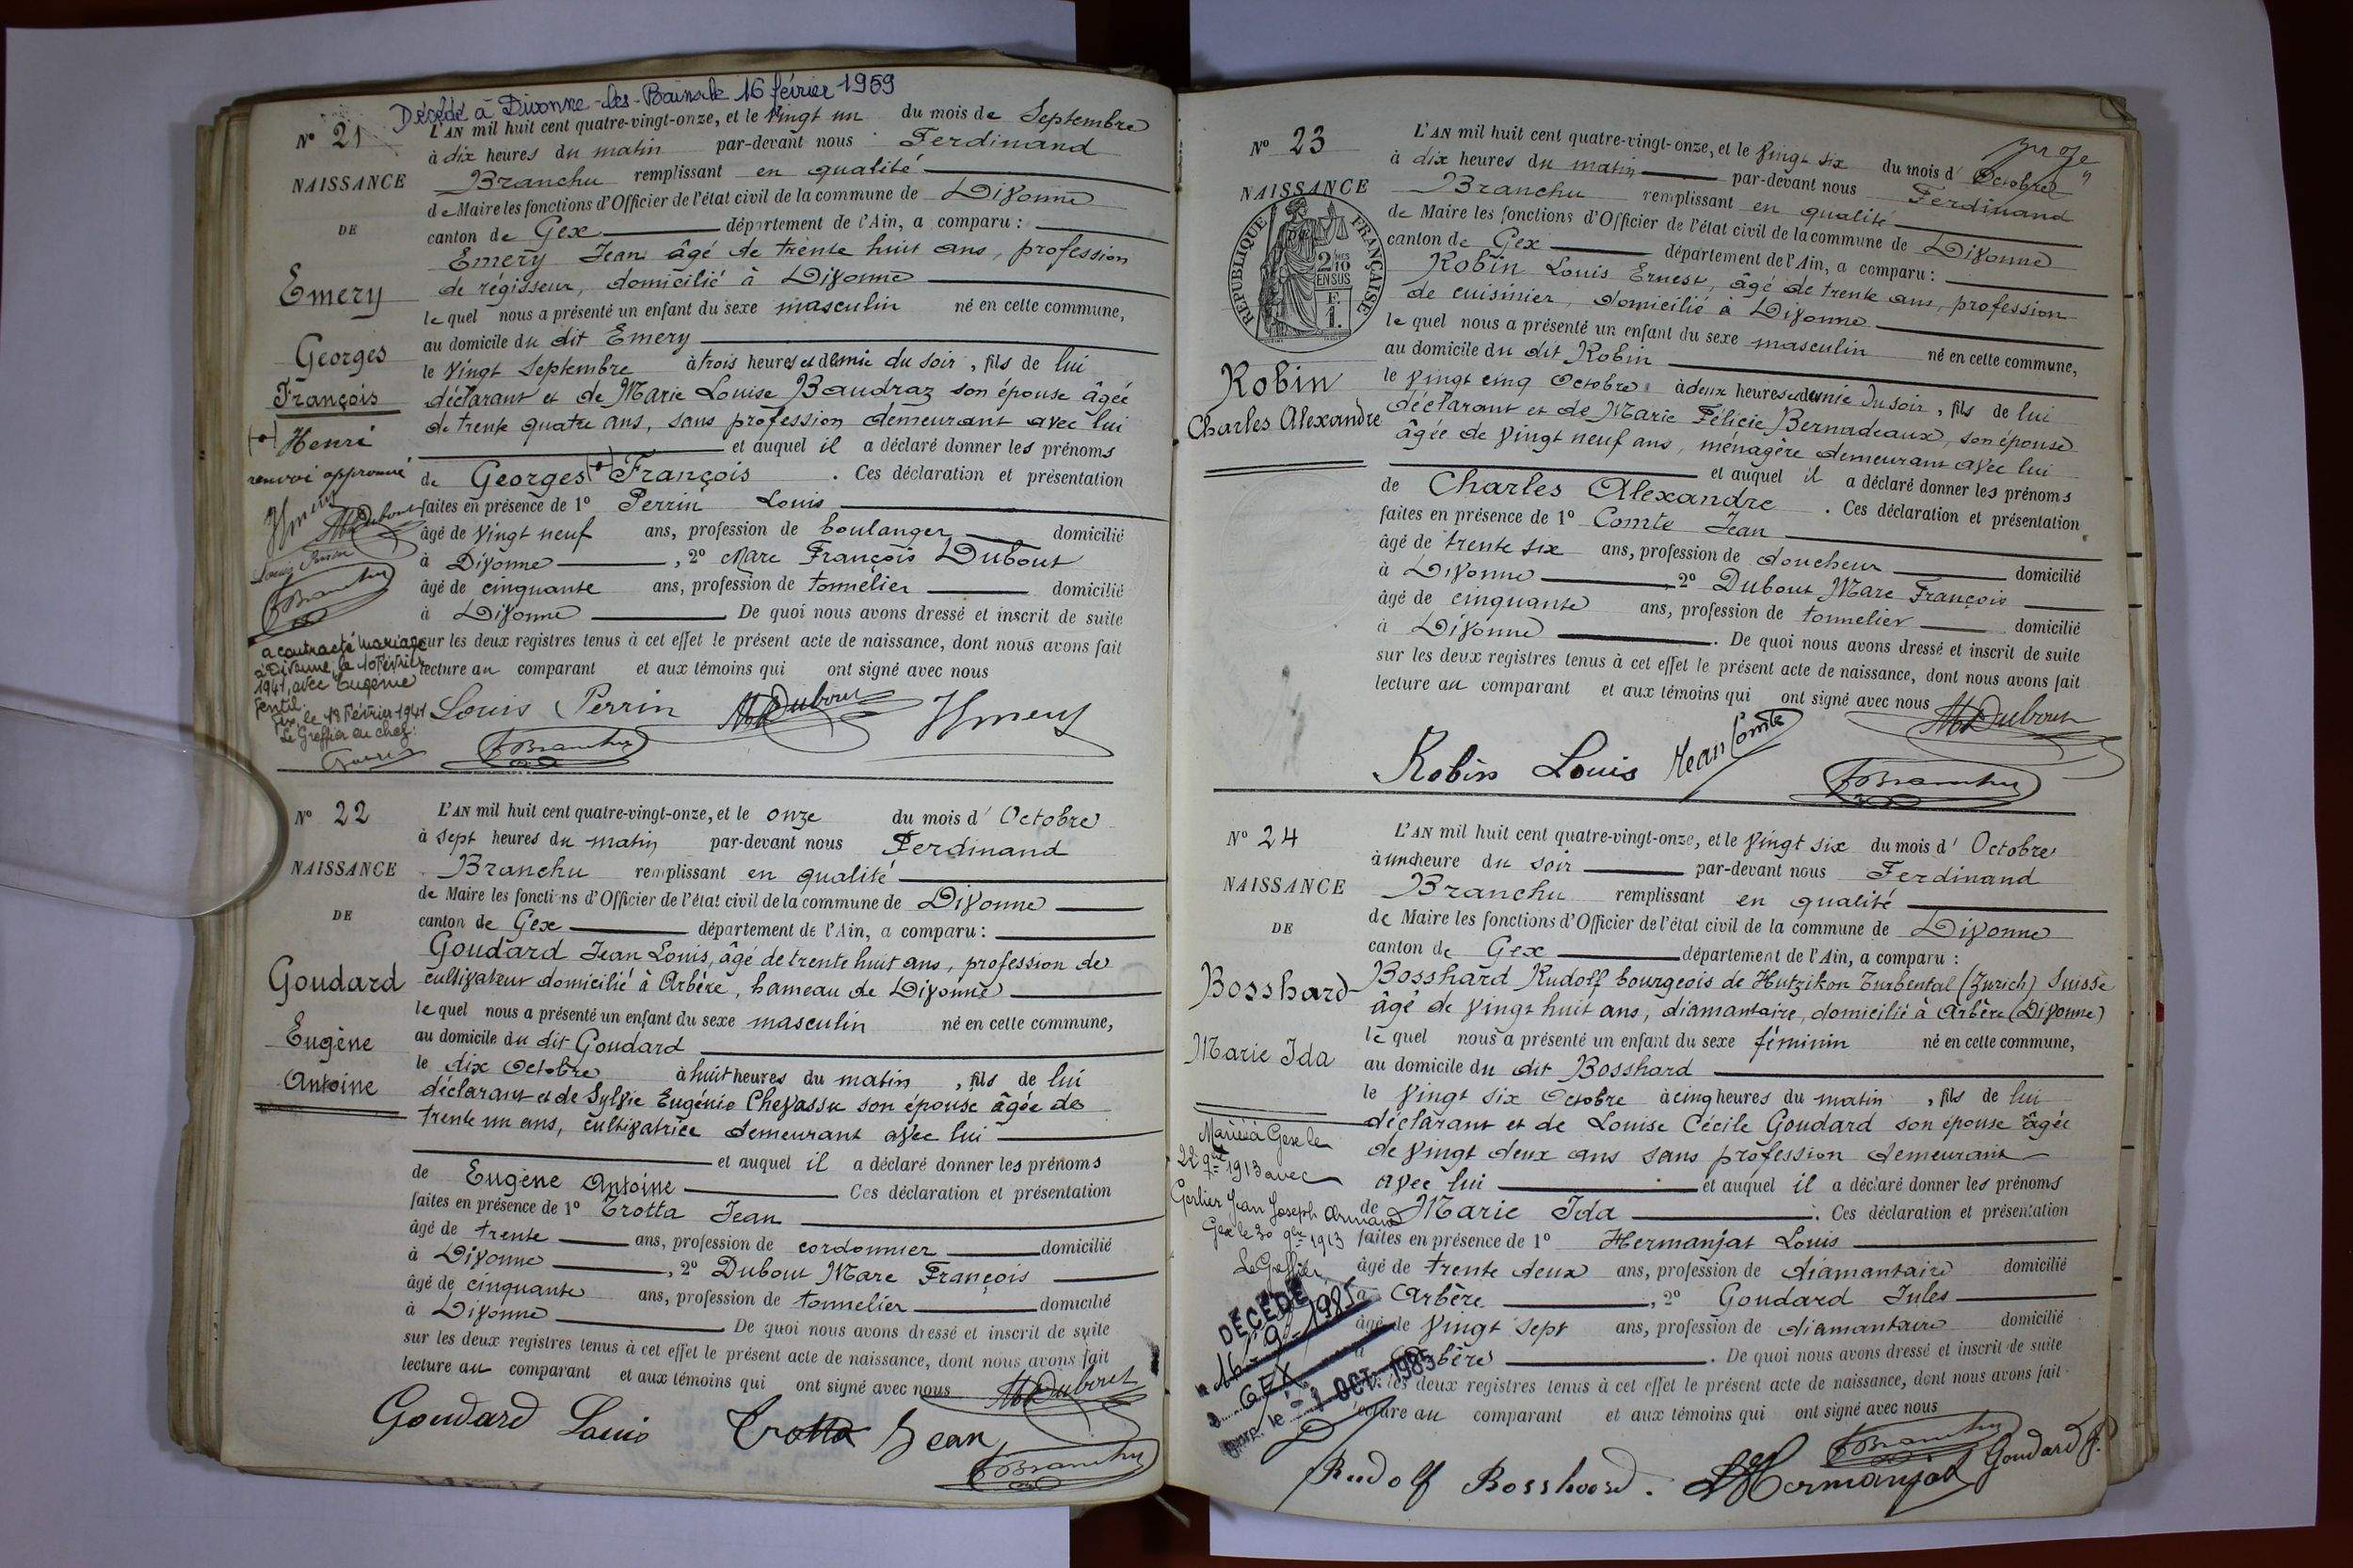 Décédé à Divonne-les-Bains le 16 février 1959
N° 21
NAISSANCE
DE
Emery
Georges
François
(+) Henri
renvoi approuvé
Emery
MF Dubout
Louis Perrin
F Branchu
a contracté mariage
à Divonne, le 10 Février
1941, avec Eugénie
Gentil.
Gex, le 13 Février 1941
Le Greffier en chef:
L'AN mil huit cent quatre-vingt-onze, et le vingt un du mois de Septembre
à dix heures du matin par-devant nous Ferdinand
Branchu remplissant en qualité
de Maire les fonctions d'Officier de l'état civil de la commune de Divonne
canton de Gex département de l'Ain, a comparu :
Emery Jean âgé de trente huit ans, profession
de régisseur, domicilié à Divonne
lequel nous a présenté un enfant du sexe masculin né en cette commune,
au domicile du dit Emery
le vingt Septembre à trois heures et demie du soir, fils de lui
déclarant et de Marie Louise Baudraz son épouse âgée
de trente quatre ans, sans profession demeurant avec lui
et auquel il a déclaré donner les prénoms
de Georges (+) François . Ces déclaration et présentation
faites en présence de 1° Perrin Louis
âgé de vingt neuf ans, profession de boulanger domicilié
à Divonne , 2° Marc François Dubout
âgé de cinquante ans, profession de tonnelier domicilié
à Divonne De quoi nous avons dressé et inscrit de suite
sur les deux registres tenus à cet effet le présent acte de naissance, dont nous avons fait
lecture au comparant et aux témoins qui ont signé avec nous
Louis Perrin MF Dubout Emery
F Branchu
N° 22
NAISSANCE
DE
Goudard
Eugène
Antoine
L'AN mil huit cent quatre-vingt-onze, et le onze du mois d'Octobre
à sept heures du matin par-devant nous Ferdinand
Branchu remplissant en qualité
de Maire les fonctions d'Officier de l'état civil de la commune de Divonne
canton de Gex département de l'Ain, a comparu :
Goudard Jean Louis, âgé de trente huit ans, profession de
cultivateur domicilié à Arbère, hameau de Divonne
lequel nous a présenté un enfant du sexe masculin né en cette commune,
au domicile du dit Goudard
le dix Octobre à huit heures du matin , fils de lui
déclarant et de Sylvie Eugénie Chevassu son épouse âgée de
trente un ans, cultivatrice demeurant avec lui
et auquel il a déclaré donner les prénoms
de Eugène Antoine Ces déclaration et présentation
faites en présence de 1° Trotta Jean
âgé de trente ans, profession de cordonnier domicilié
à Divonne , 2° Dubout Marc François
âgé de cinquante ans, profession de tonnelier domicilié
à Divonne De quoi nous avons dressé et inscrit de suite
sur les deux registres tenus à cet effet le présent acte de naissance, dont nous avons fait
lecture au comparant et aux témoins qui ont signé avec nous MF Dubout
Goudard Louis Trotta Jean
F Branchu
N° 23
NAISSANCE
DE
RÉPUBLIQUE FRANÇAISE
2/10
EN SUS
F.
1.
Robin
Charles Alexandre
L'AN mil huit cent quatre-vingt-onze, et le vingt six du mois d'Octobre
à dix heures du matin par-devant nous Ferdinand
Branchu remplissant en qualité
de Maire les fonctions d'Officier de l'état civil de la commune de Divonne
canton de Gex département de l'Ain, a comparu :
Robin Louis Ernest, âgé de trente ans, profession
de cuisinier, domicilié à Divonne
lequel nous a présenté un enfant du sexe masculin né en cette commune,
au domicile du dit Robin
le vingt cinq Octobre à deux heures et demie du soir, fils de lui
déclarant et de Marie Félicie Bernadeaux, son épouse
âgée de vingt neuf ans, ménagère demeurant avec lui
et auquel il a déclaré donner les prénoms
de Charles Alexandre . Ces déclaration et présentation
faites en présence de 1° Comte Jean
âgé de trente six ans, profession de doucheur domicilié
à Divonne 2° Dubout Marc François
âgé de cinquante ans, profession de tonnelier domicilié
à Divonne . De quoi nous avons dressé et inscrit de suite
sur les deux registres tenus à cet effet le présent acte de naissance, dont nous avons fait
lecture au comparant et aux témoins qui ont signé avec nous MF Dubout
Robin Louis Jean Comte
F Branchu
N° 24
NAISSANCE
DE
Bosshard
Marie Ida
Mariée à Gex le
22 9bre 1913 avec
Gerlier Jean Joseph Armand
Gex le 30 9bre 1913
Le Greffier
DÉCÉDÉ
16-9-1985
à GEX
le - 1 OCT. 1985
L'AN mil huit cent quatre-vingt-onze, et le vingt six du mois d'Octobre
à une heure du soir par-devant nous Ferdinand
Branchu remplissant en qualité
de Maire les fonctions d'Officier de l'état civil de la commune de Divonne
canton de Gex département de l'Ain, a comparu :
Bosshard Rudolf bourgeois de Hutzikon Turbental (Zurich) Suisse
âgé de vingt huit ans, diamantaire, domicilié à Arbère (Divonne)
lequel nous a présenté un enfant du sexe féminin né en cette commune,
au domicile du dit Bosshard
le vingt six Octobre à cinq heures du matin , fils de lui
déclarant et de Louise Cécile Goudard son épouse âgée
de vingt deux ans sans profession demeurant
avec lui et auquel il a déclaré donner les prénoms
de Marie Ida . Ces déclaration et présentation
faites en présence de 1° Hermanjat Louis
âgé de trente deux ans, profession de diamantaire domicilié
à Arbère , 2° Goudard Jules
âgé de vingt sept ans, profession de diamantaire domicilié
à Arbère . De quoi nous avons dressé et inscrit de suite
sur les deux registres tenus à cet effet le présent acte de naissance, dont nous avons fait
lecture au comparant et aux témoins qui ont signé avec nous
F Branchu
Rudolf Bosshard. L Hermanjat Goudard J.